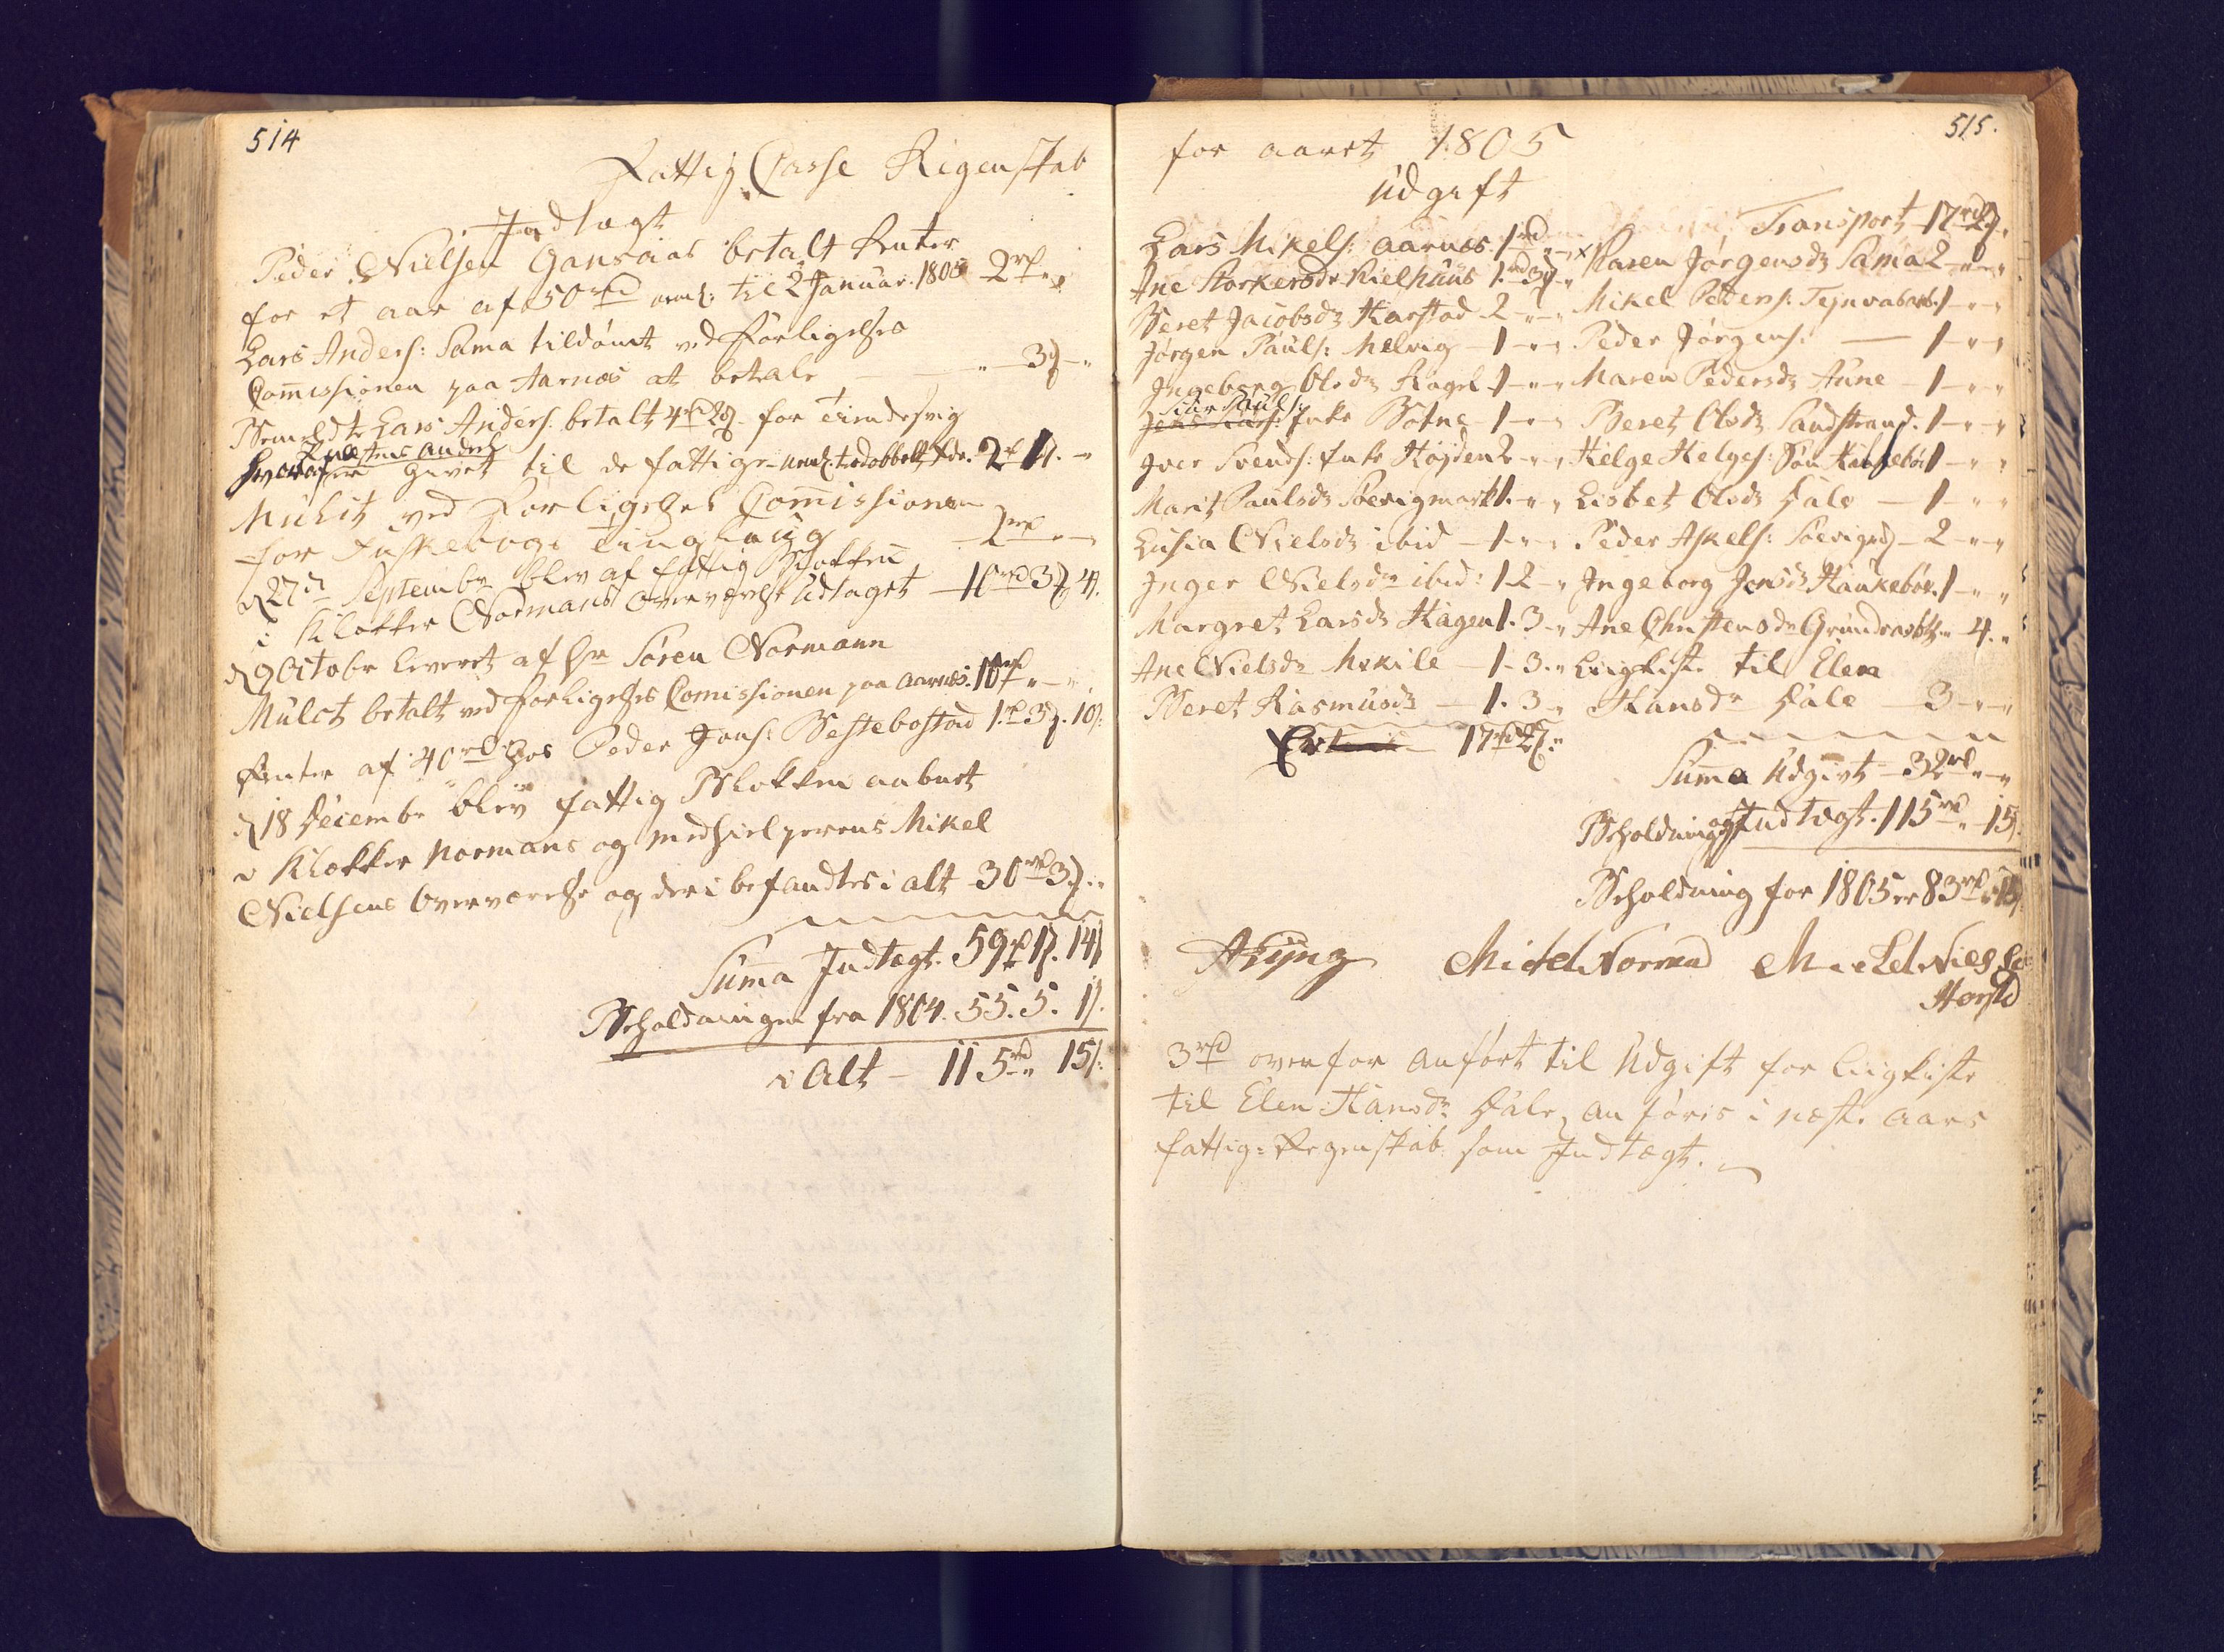 514
Fattig Casse Rigenskab
Indtægt
Peder Nielsen Gansaas betalt Renter
for et aar af 50 rd nemlig til 2 Januar. 1805 2 rd " "
Lars Anders: Sama tildømt ved Forligelses
Commissionen paa Aarnæs at betale — " — 3 — "
Bemeldte Lars Anders. betalt 4 rd 2 for Tiendesvig
hvoraf er givet til de fattige - neml. tredobbelt Tde. 2 1. "
Præstens Andeel
Mulct ved Forligelses Commissionen
for Fuskevogs Tinglaug 2 rd " "
d 27de September blev af fattig Blokken
i Klokker Normans Overværelse udtaget — 10 rd 3 4
d 9 Octobr leveret af Hr Søren Normann
Mulct betalt ved Forligelses Comissionen paa aarnæs. 10 rd " "
Renter af 40 rd hos Peder Jons: Vestebostad 1. 3. 10
d 18 Decembr blev fattig Blokken aabnet
i Klokker Normans og medhielperens Mikel
Nielsens Overværelse og deri befandtes i alt 30 rd 3 "
Summa Indtægt. 59 rd 1. 14
Beholdningen fra 1804. 55. 5. 1.
i Alt — 115 rd " 15
515.
for aaret 1805
Udgift
Lars Mikels: aarnæs. 1 rd " "
Ane Storkersdr Kielhuus 1. 3 "
Beret Jacobsdr Karstad 2 " "
Jørgen Pauls: Melvig — 1 " "
Ingeborg Olsdr Kagel 1 " "
Siur Pauls:
Jens Lars: Enke Botne 1 " "
Iver Svends: Enke Høyden 2 " "
Marit Paulsdr Søevigmark 1. " "
Lusia Nielsdr ibid — 1 " "
Inger Nielsdr ibid: 1 2 "
Margret Larsdr Hagen 1. 3 "
Ane Nielsdr Mekile — 1 3 "
Beret Rasmusdr — 1. 3 "
17 rd 2 "
Transport 17 rd 2 "
Karen Jørgensdr Sama 2 " "
Mikel Peders: Tejnvasb. 1 " "
Peder Jørgens: — 1 " "
Maren Pedersdr Aune — 1 " "
Beret Olsdr Sandstrand. 1 " "
Helge Helges: Søn Haukebøe 1 " "
Lisbet Olsdr Dale — 1 " "
Peder Askels: Søevig — 2 " "
Ingeborg Jensdr Haukebøe. 1 " "
Ane Christensdr Grundvasb. " 4. "
Liigkiste til Elen
Hansdr Dale 3 " "
Summa Udgivt 32 rd " "
Beholdning og Indtægt. 115 rd " 15
Beholdning for 1805 er 83 rd " 15
AKyng Mikel Normand Mickel Nielsen
Horstd
3 rd ovenfor anført til Udgift for Liigkiste
til Elen Hansdr Dale, anføris i næste aars
fattig-Regenskab som Indtægt.